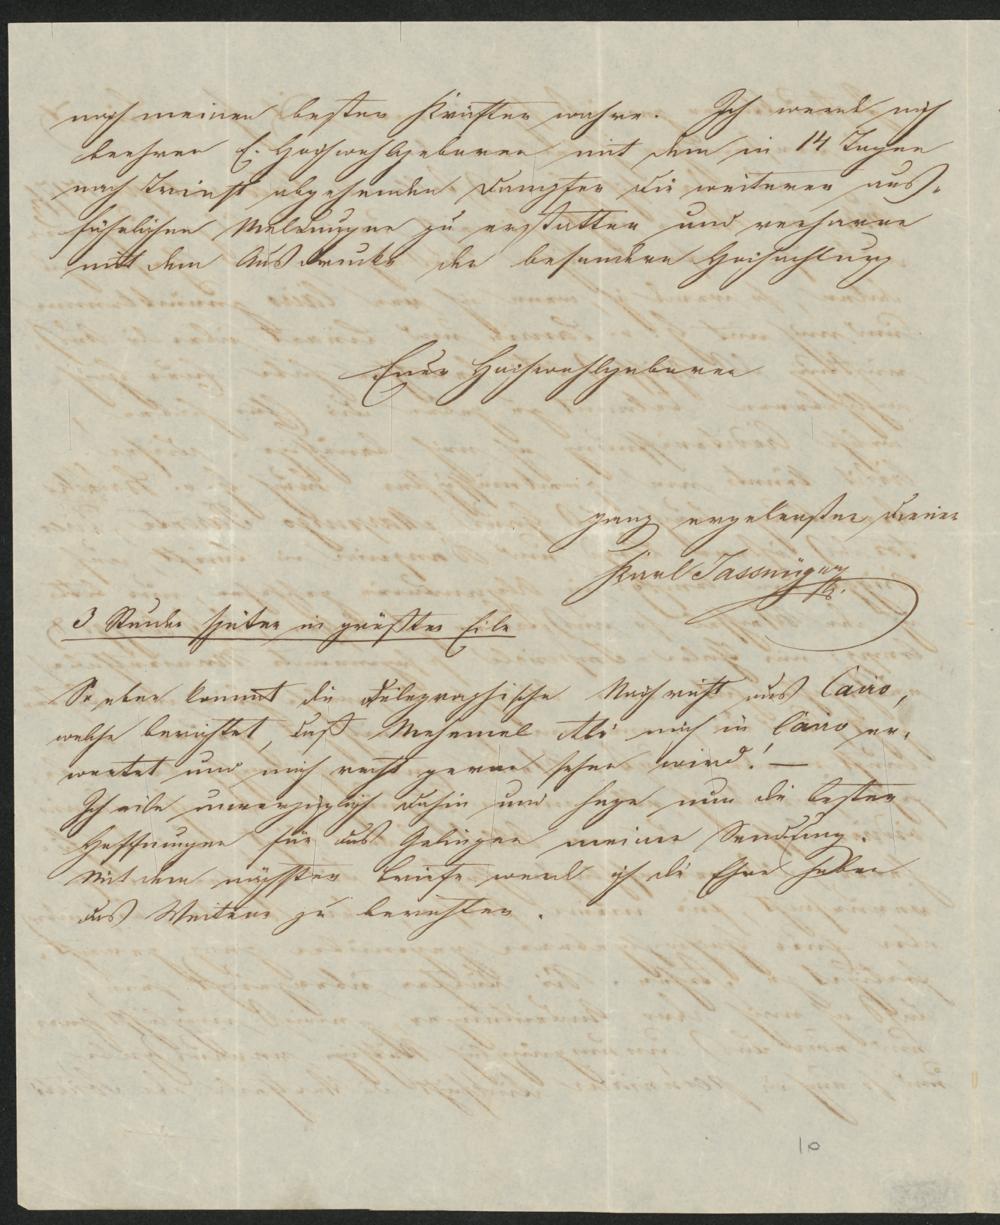 nach meinen besten Kräften wahre. Ich werde mich
beehren E. Hochwohlgeboren mit dem in 14 Tagen
nach Triest abgehenden Dampfer die weiteren aus-
führlichen Meldungen zu erstatten und verharre
mit dem Ausdrucke der besondern Hochachtung
Euer Hochwohlgeboren
ganz ergebenster Diener
Karl
3 Stunden später in größter Eile
So eben kommt die telegraphische Nachricht aus Cairo,
welche berichtet, daß Mehemed Ali mich in Cairo er-
wartet und mich recht gerne sehen wird! —
Ich eile unverzüglich dahin und hege nun die besten
Hoffnungen für das Gelingen meiner Sendung.
Mit dem nächsten Briefe werd ich die Ehre haben
das Weitere zu berichten.
10